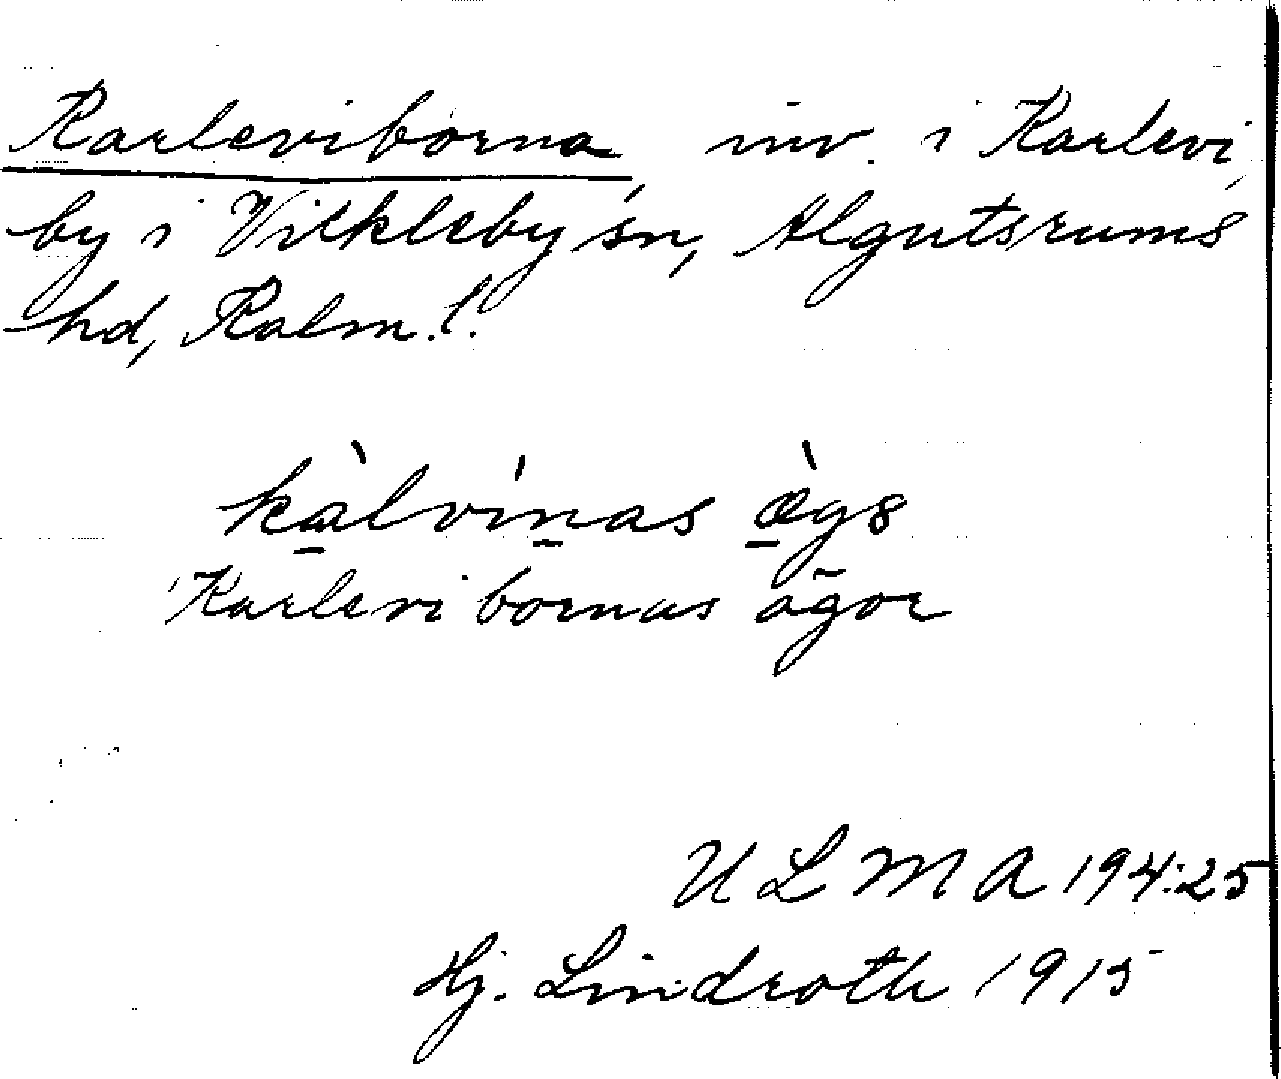 Karleviborna inv. i Karlevi,
by i Vickleby sn, Algutsrums
hd, Kalm. l.
kàlvínas ægs
Karlevibornas ägor
U L M A 194:25
Hj. Lindroth 1915